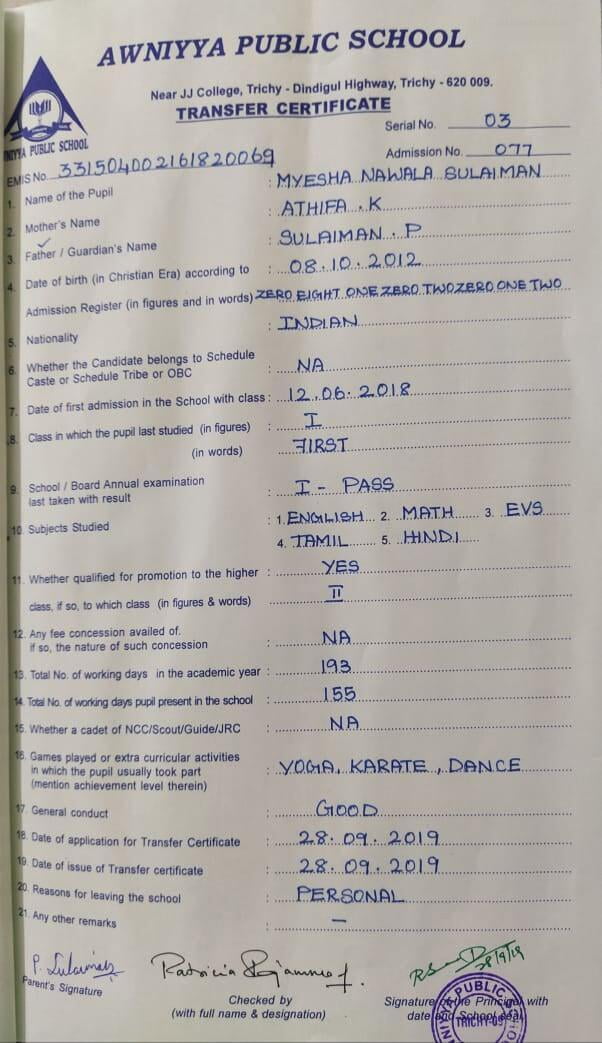 AWNIYYA PUBLIC SCHOOL
Near JJ College, Trichy - Dindigul Highway, Trichy - 620 009.
TRANSFER CERTIFICATE
NIYYA PUBLIC SCHOOL
Serial No. 03
Admission No. 077
EMIS No. 331504002161820069
1. Name of the Pupil : MYESHA NAWALA SULAIMAN
2. Mother's Name : ATHIFA . K
3. Father / Guardian's Name : SULAIMAN . P
4. Date of birth (in Christian Era) according to : 08.10.2012
Admission Register (in figures and in words) ZERO EIGHT ONE ZERO TWO ZERO ONE TWO
5. Nationality : INDIAN
6. Whether the Candidate belongs to Schedule
Caste or Schedule Tribe or OBC : NA
7. Date of first admission in the School with class : 12.06.2018
8. Class in which the pupil last studied (in figures) : I
(in words) FIRST
9. School / Board Annual examination
last taken with result : I - PASS
10. Subjects Studied : 1. ENGLISH 2. MATH 3. EVS
4. TAMIL 5. HINDI
11. Whether qualified for promotion to the higher : YES
class, if so, to which class (in figures & words) II
12. Any fee concession availed of.
if so, the nature of such concession : NA
13. Total No. of working days in the academic year : 193
14. Total No. of working days pupil present in the school : 155
15. Whether a cadet of NCC/Scout/Guide/JRC : NA
16. Games played or extra curricular activities
in which the pupil usually took part : YOGA, KARATE, DANCE
(mention achievement level therein)
17. General conduct : GOOD
18. Date of application for Transfer Certificate : 28.09.2019
19. Date of issue of Transfer certificate : 28.09.2019
20. Reasons for leaving the school : PERSONAL
21. Any other remarks : —
P. Sulaiman
Patricia
28/9/19
Parent's Signature
Checked by
(with full name & designation)
Signature of the Principal with
date and School seal
PUBLIC
TRICHY-09